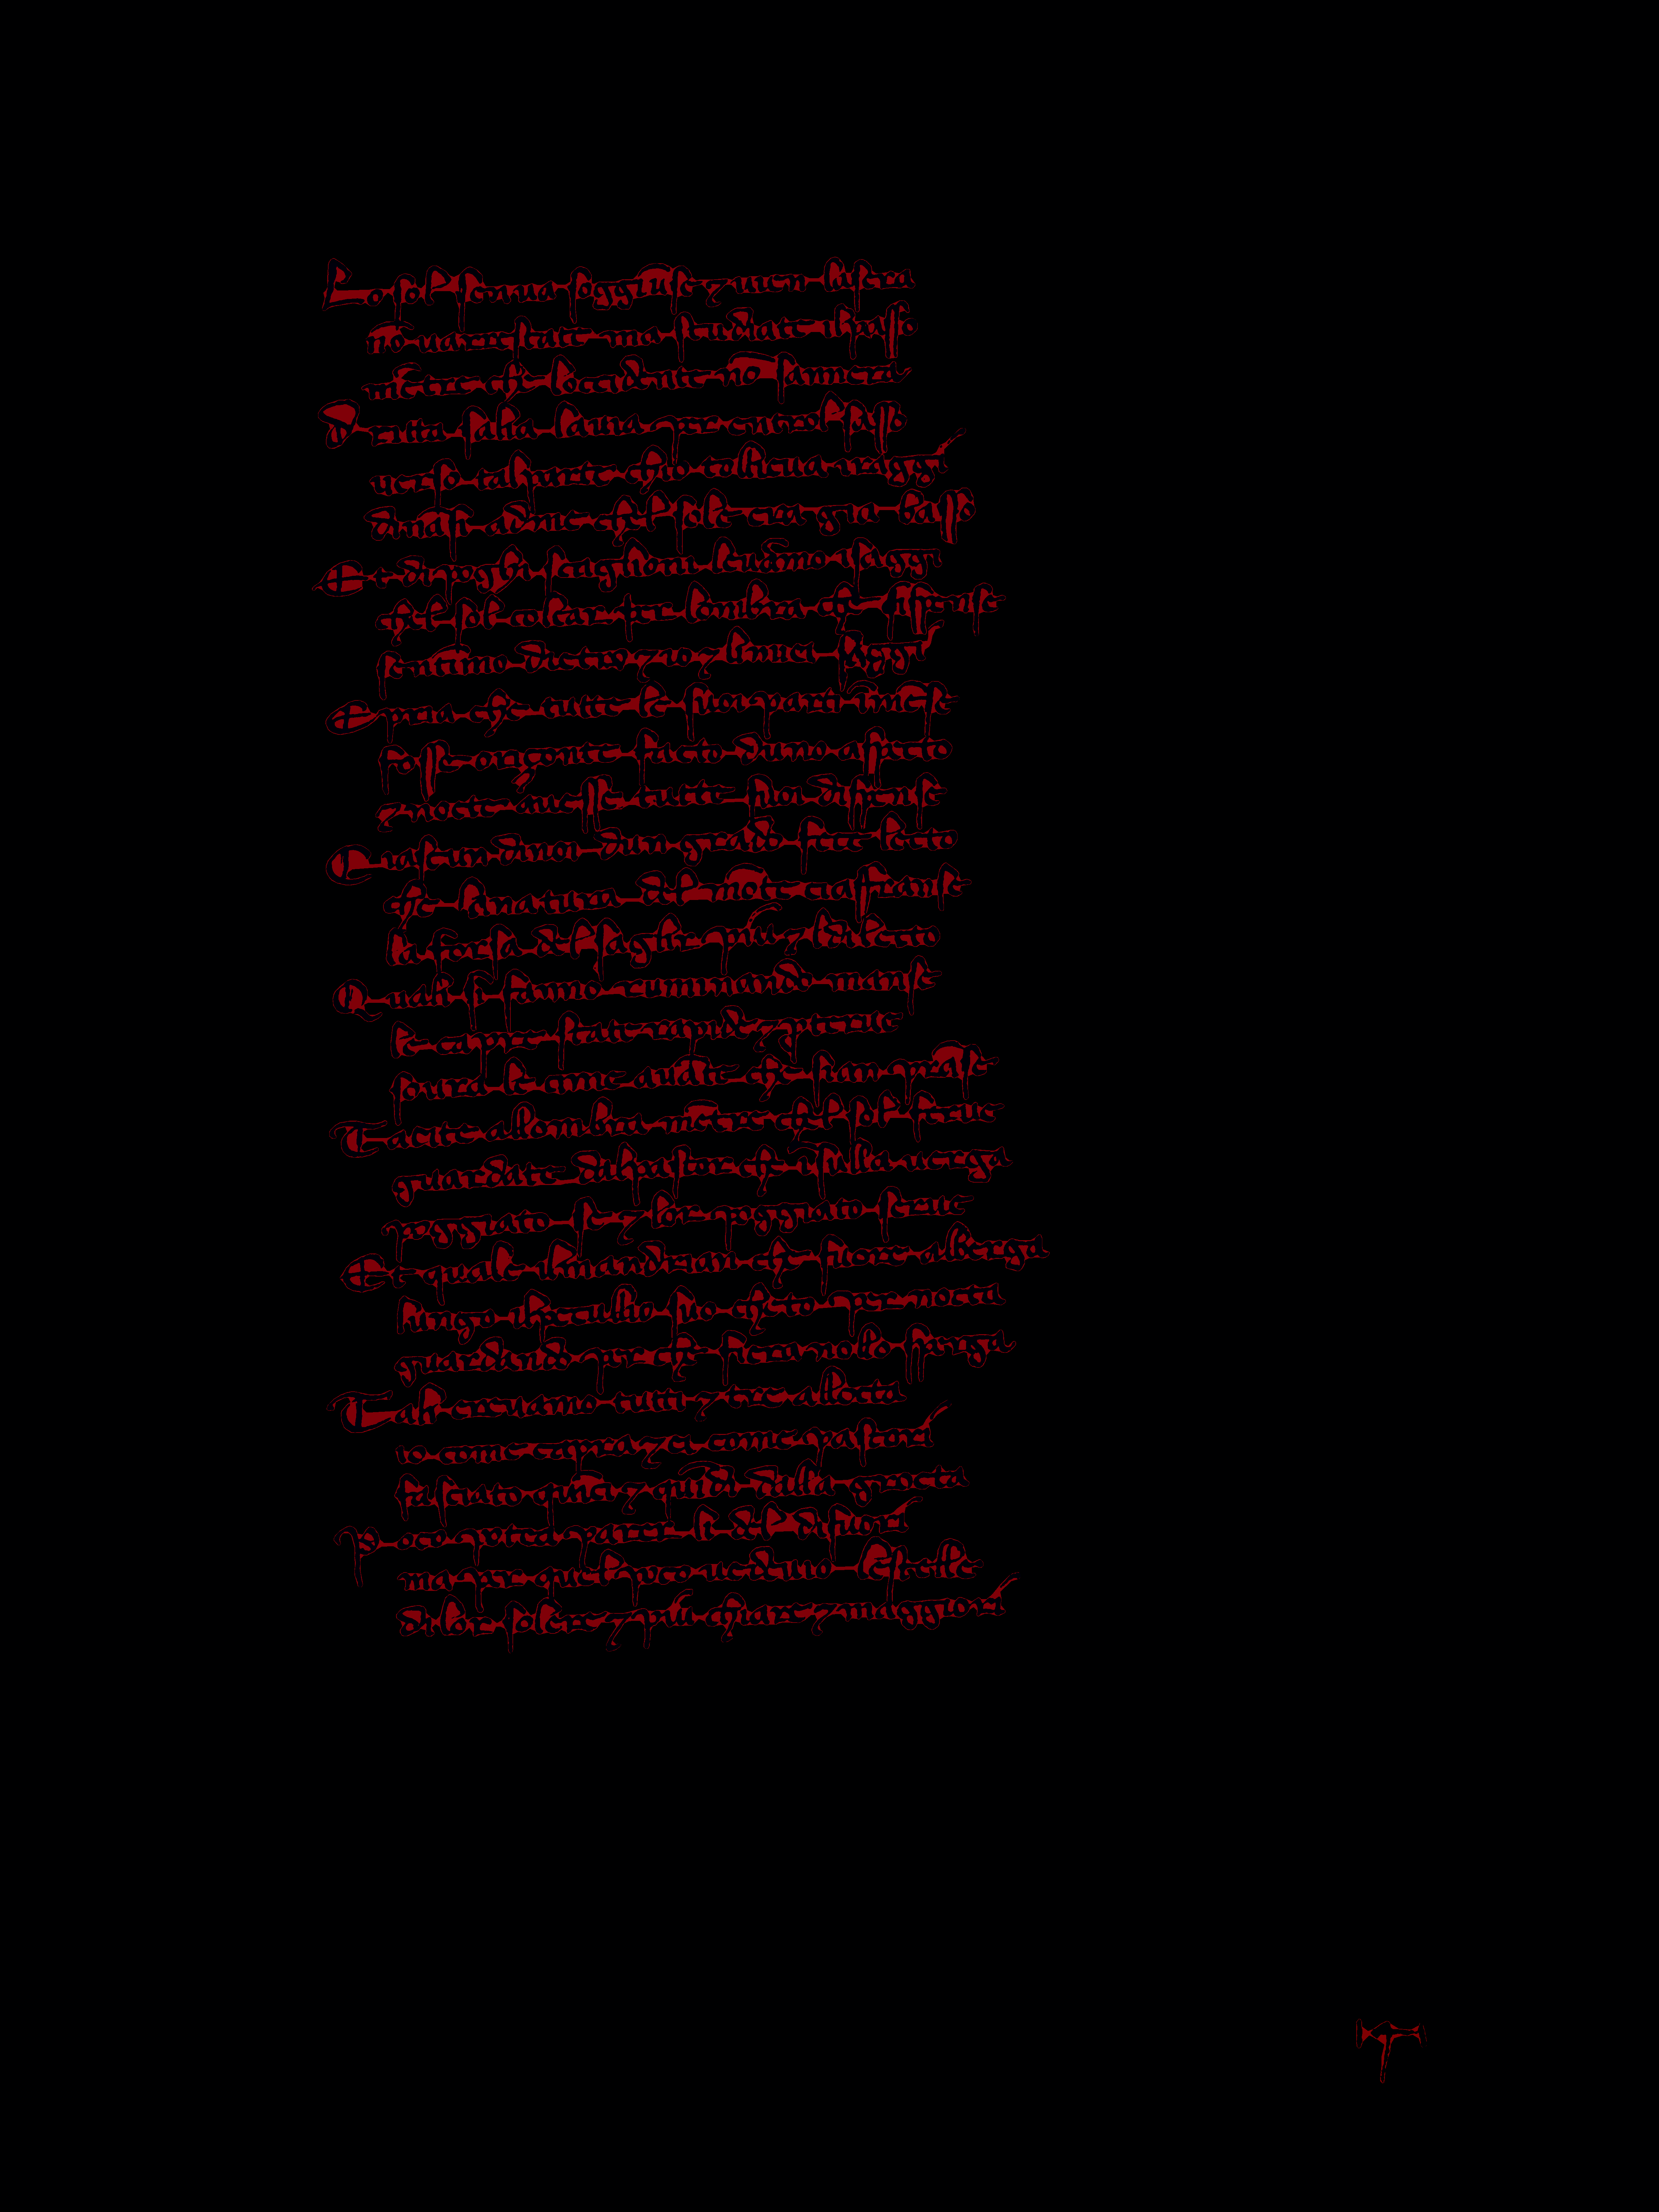 Lo sol senua soggiũse z uien lasera
nõ uarrestate ma studiate ilpasso
mẽtre che loccidẽte nõ sannera
Dritta salia lauia per entrol sasso
uerso talparte chio toglieua iraggi
dinãzi adme chel sole era gia basso
Et dipoghi scaglioni leuãmo isaggi
chel sol colcar per lombra che si spense
sentĩmo dietro z io z limiei saggi
E pria che tutte le suoi parti ĩmẽse
fosse origonte facto duno aspecto
z nocte auesse tutte suoi dispense
Ciascun dinoi dun grado fece lecto
che lanatura del mõte ciafranse
la forsa del saglir piu z eldilecto
Quali si fanno ruminando manse
le capre state rapide z proterue
soura le cime auãte che sien prãse
Tacite allombra mẽtre chel sol ferue
guardate dalpastor che ĩsulla uerga
poggiato se z lor poggiato serue
Et quale ilmandrian che fuori alberga
lungo ilpeculio suo cheto pernocta
guardando perche fiera nolo sperga
Tali erauamo tutti z tre allotta
io come capra z ei come pastori
fasciati qnci z quĩdi dalla grotta
Poco potea parer li del difuori
ma per quel poco uedeuio le stelle
dilor solere z piu chiare z maggiori